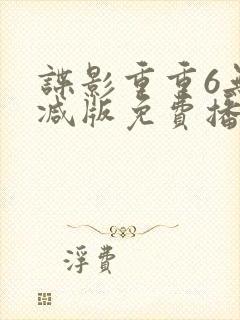 諜影重重6無
减版免費播
浮費